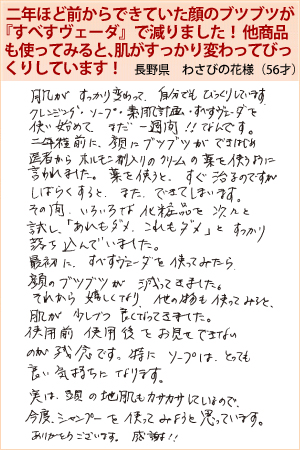 二年ほど前からできていた顔のブツブツが
『すべすヴェーダ』で減りました！他商品
も使ってみると、肌がすっかり変わってびっ
くりしています！　長野県　わさびの花様（56才）
肌が すっかり変わって、自分でも びっくりしています
クレンジング・ソープ・素肌計画・すべすヴェーダを
使い始めて まだ一週間!! なんです。
二年程前に、顔にブツブツが できはじめ
医者から ホルモン剤入りのクリームの薬を使うように
言われました。薬を使うと、すぐ治るのですが
しばらくすると、また、できてしまいます。
その間、いろいろな 化粧品を 次々と
試し、「あれもダメ、これもダメ」と すっかり
落ち込んでいました。
最初に、すべすヴェーダを 使ってみたら
顔のブツブツが 減ってきました。
それから 嬉しくなり、他の物も 使ってみると、
肌が 少しづつ 良くなってきました。
使用前 使用後を お見せできない
のが 残念です。特に ソープは、とっても
良い気持ちになります。
実は、頭の地肌もカサカサしているので、
今度、シャンプーを使ってみようと思っています。
ありがとうございます。感謝!!